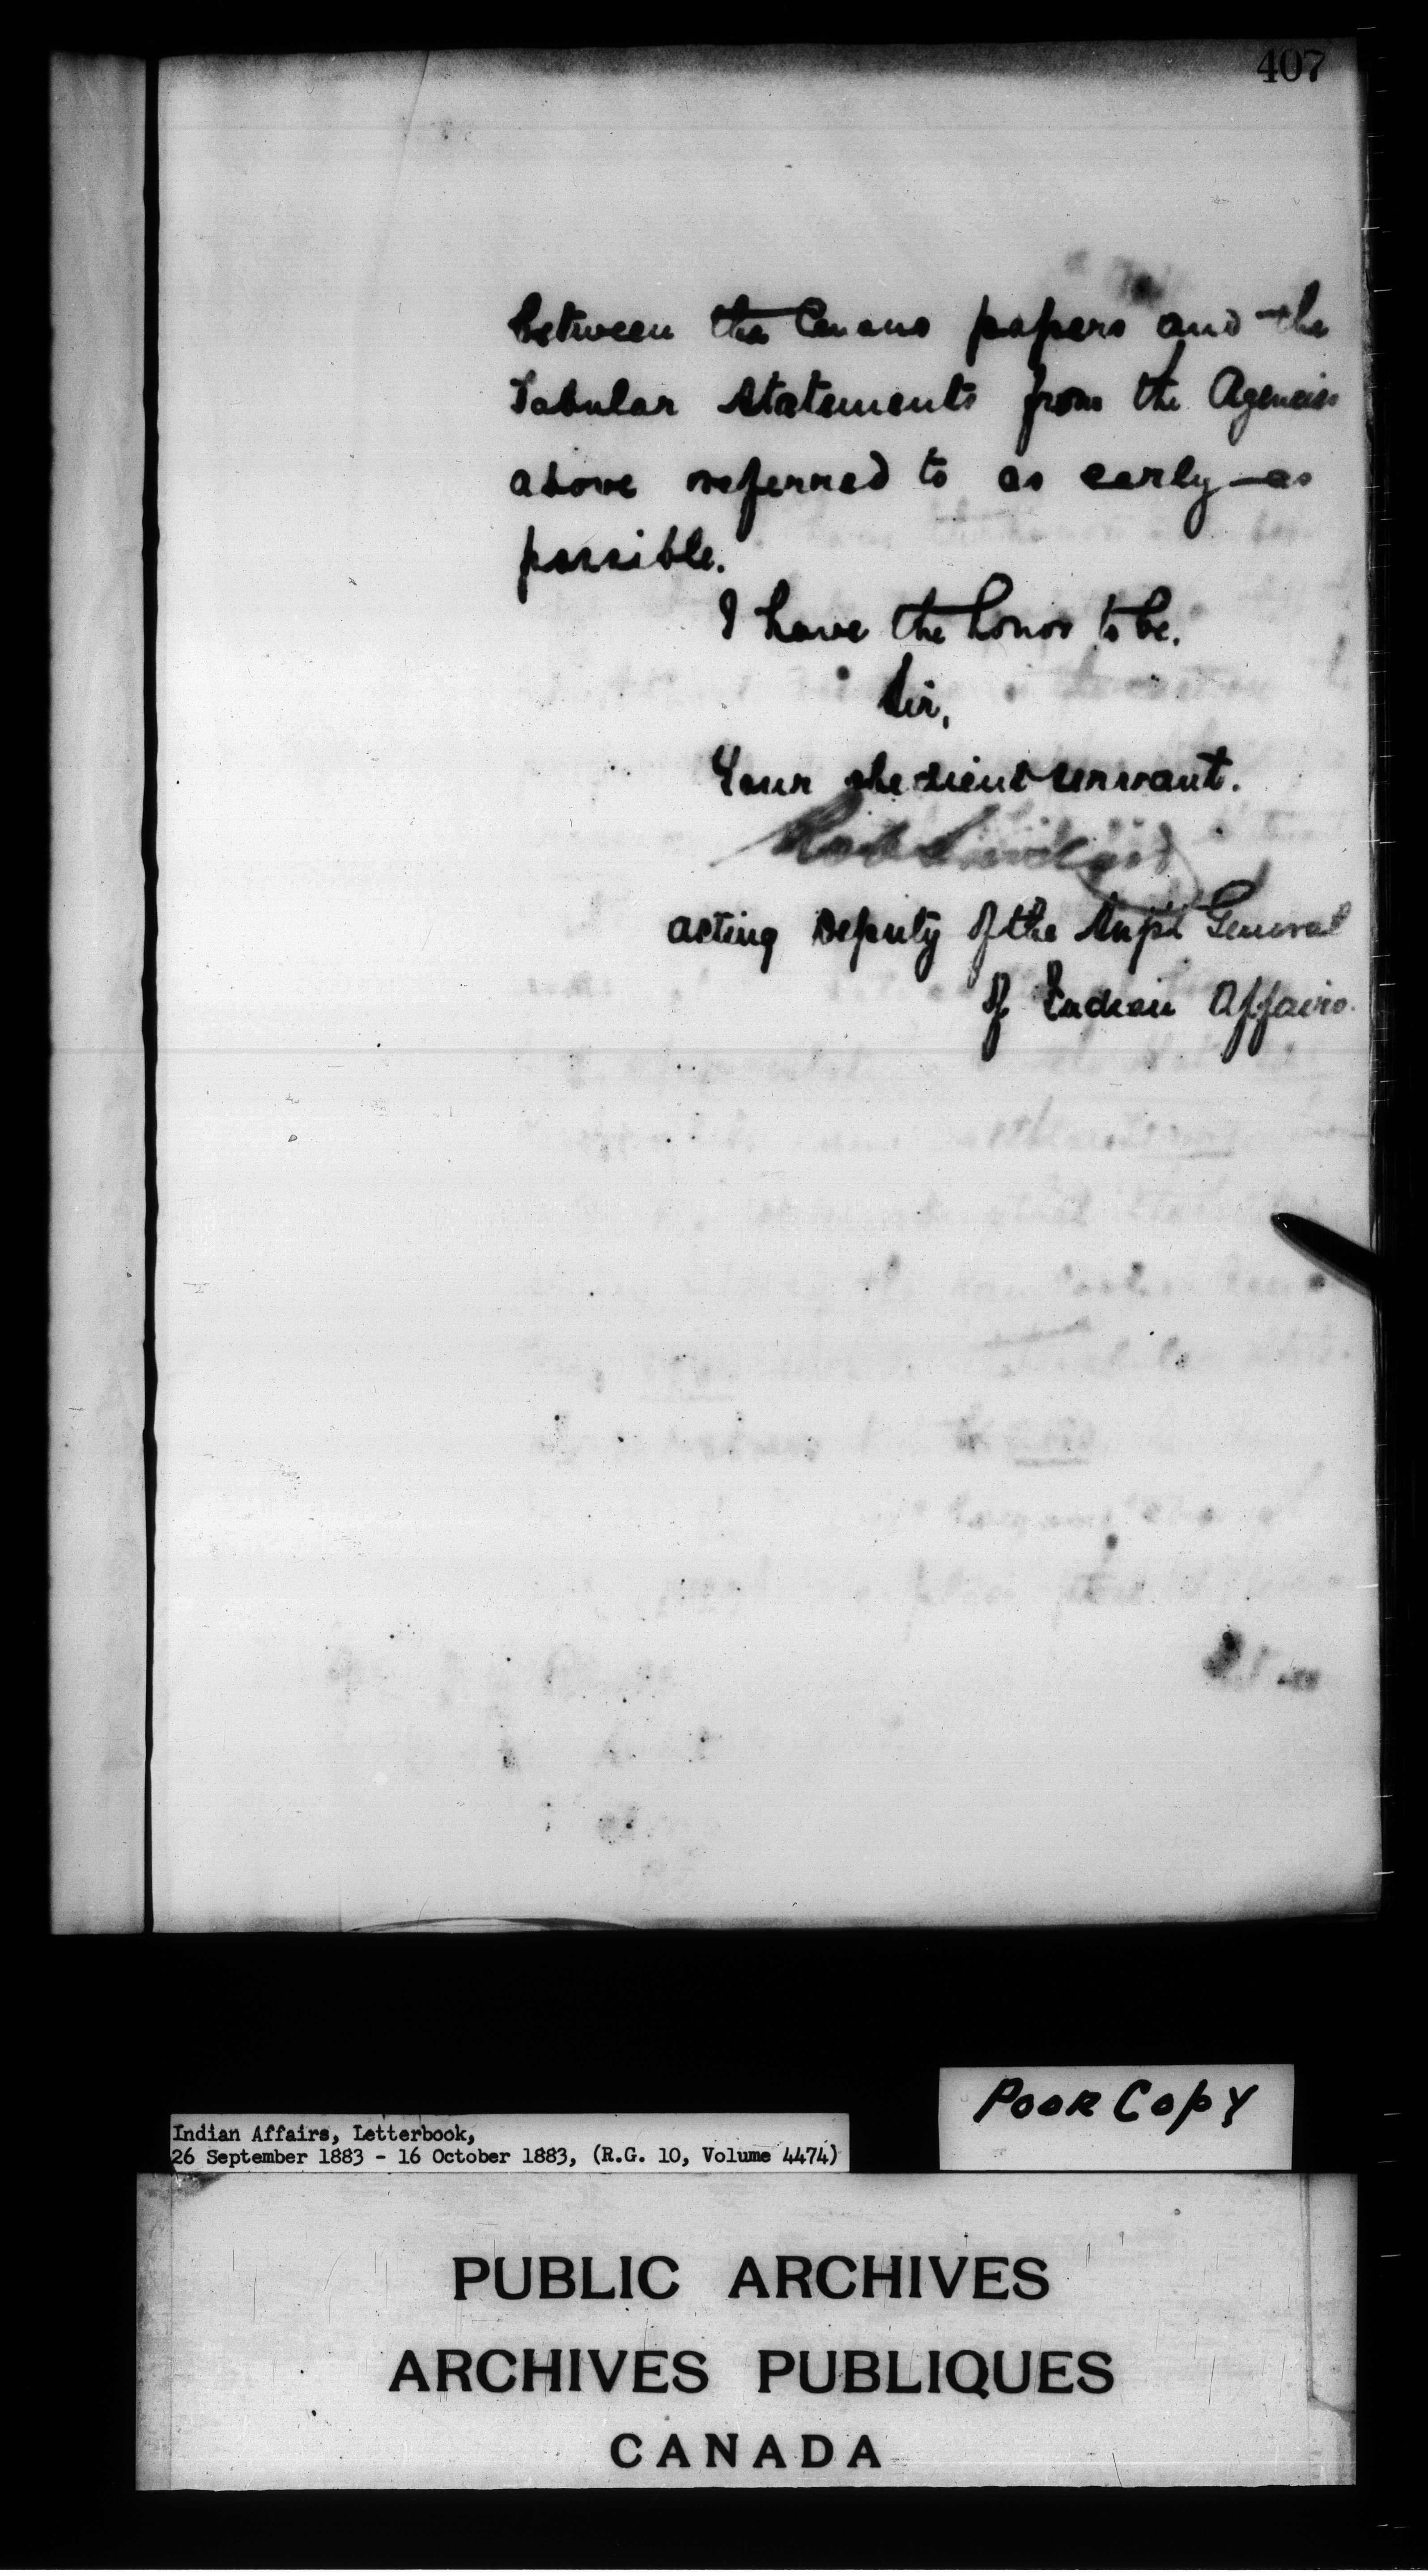 407
between the Census papers and the
Tabular Statements from the Agencies
above referred to as early as
possible.
I have the honor to be.
Sir,
Your obedient servant.
Rob Sinclair
acting Deputy of the Supt General
of Indian Affairs.
Poor Copy
Indian Affairs, Letterbook,
26 September 1883 - 16 October 1883, (R.G. 10, Volume 4474)
PUBLIC ARCHIVES
ARCHIVES PUBLIQUES
CANADA